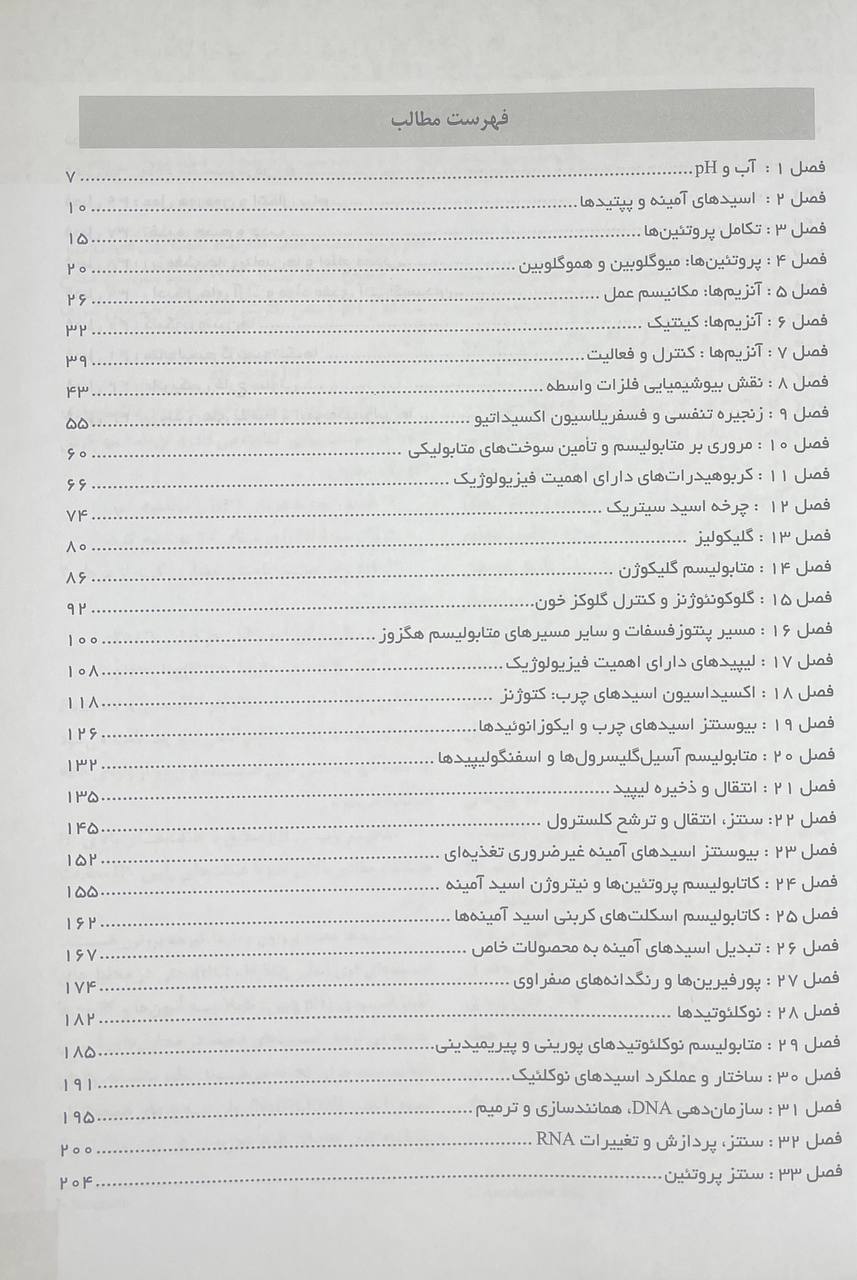 فهرست مطالب
فصل ۱ : آب و pH ........ ۷
فصل ۲ : اسیدهای آمینه و پپتیدها ........ ۱۰
فصل ۳ : تکامل پروتئین‌ها ........ ۱۵
فصل ۴ : پروتئین‌ها: میوگلوبین و هموگلوبین ........ ۲۰
فصل ۵ : آنزیم‌ها: مکانیسم عمل ........ ۲۶
فصل ۶ : آنزیم‌ها: کینتیک ........ ۳۲
فصل ۷ : آنزیم‌ها : کنترل و فعالیت ........ ۳۹
فصل ۸ : نقش بیوشیمیایی فلزات واسطه ........ ۴۳
فصل ۹ : زنجیره تنفسی و فسفریلاسیون اکسیداتیو ........ ۵۵
فصل ۱۰ : مروری بر متابولیسم و تأمین سوخت‌های متابولیکی ........ ۶۰
فصل ۱۱ : کربوهیدرات‌های دارای اهمیت فیزیولوژیک ........ ۶۶
فصل ۱۲ : چرخه اسید سیتریک ........ ۷۴
فصل ۱۳ : گلیکولیز ........ ۸۰
فصل ۱۴ : متابولیسم گلیکوژن ........ ۸۶
فصل ۱۵ : گلوکونئوژنز و کنترل گلوکز خون ........ ۹۲
فصل ۱۶ : مسیر پنتوزفسفات و سایر مسیرهای متابولیسم هگزوز ........ ۱۰۰
فصل ۱۷ : لیپیدهای دارای اهمیت فیزیولوژیک ........ ۱۰۸
فصل ۱۸ : اکسیداسیون اسیدهای چرب: کتوژنز ........ ۱۱۸
فصل ۱۹ : بیوسنتز اسیدهای چرب و ایکوزانوئیدها ........ ۱۲۶
فصل ۲۰ : متابولیسم آسیل‌گلیسرول‌ها و اسفنگولیپیدها ........ ۱۳۲
فصل ۲۱ : انتقال و ذخیره لیپید ........ ۱۳۵
فصل ۲۲: سنتز، انتقال و ترشح کلسترول ........ ۱۴۵
فصل ۲۳ : بیوسنتز اسیدهای آمینه غیرضروری تغذیه‌ای ........ ۱۵۲
فصل ۲۴ : کاتابولیسم پروتئین‌ها و نیتروژن اسید آمینه ........ ۱۵۵
فصل ۲۵ : کاتابولیسم اسکلت‌های کربنی اسید آمینه‌ها ........ ۱۶۲
فصل ۲۶ : تبدیل اسیدهای آمینه به محصولات خاص ........ ۱۶۷
فصل ۲۷ : پورفیرین‌ها و رنگدانه‌های صفراوی ........ ۱۷۴
فصل ۲۸ : نوکلئوتیدها ........ ۱۸۲
فصل ۲۹ : متابولیسم نوکلئوتیدهای پورینی و پیریمیدینی ........ ۱۸۵
فصل ۳۰ : ساختار و عملکرد اسیدهای نوکلئیک ........ ۱۹۱
فصل ۳۱ : سازمان‌دهی DNA، همانندسازی و ترمیم ........ ۱۹۵
فصل ۳۲ : سنتز، پردازش و تغییرات RNA ........ ۲۰۰
فصل ۳۳ : سنتز پروتئین ........ ۲۰۴